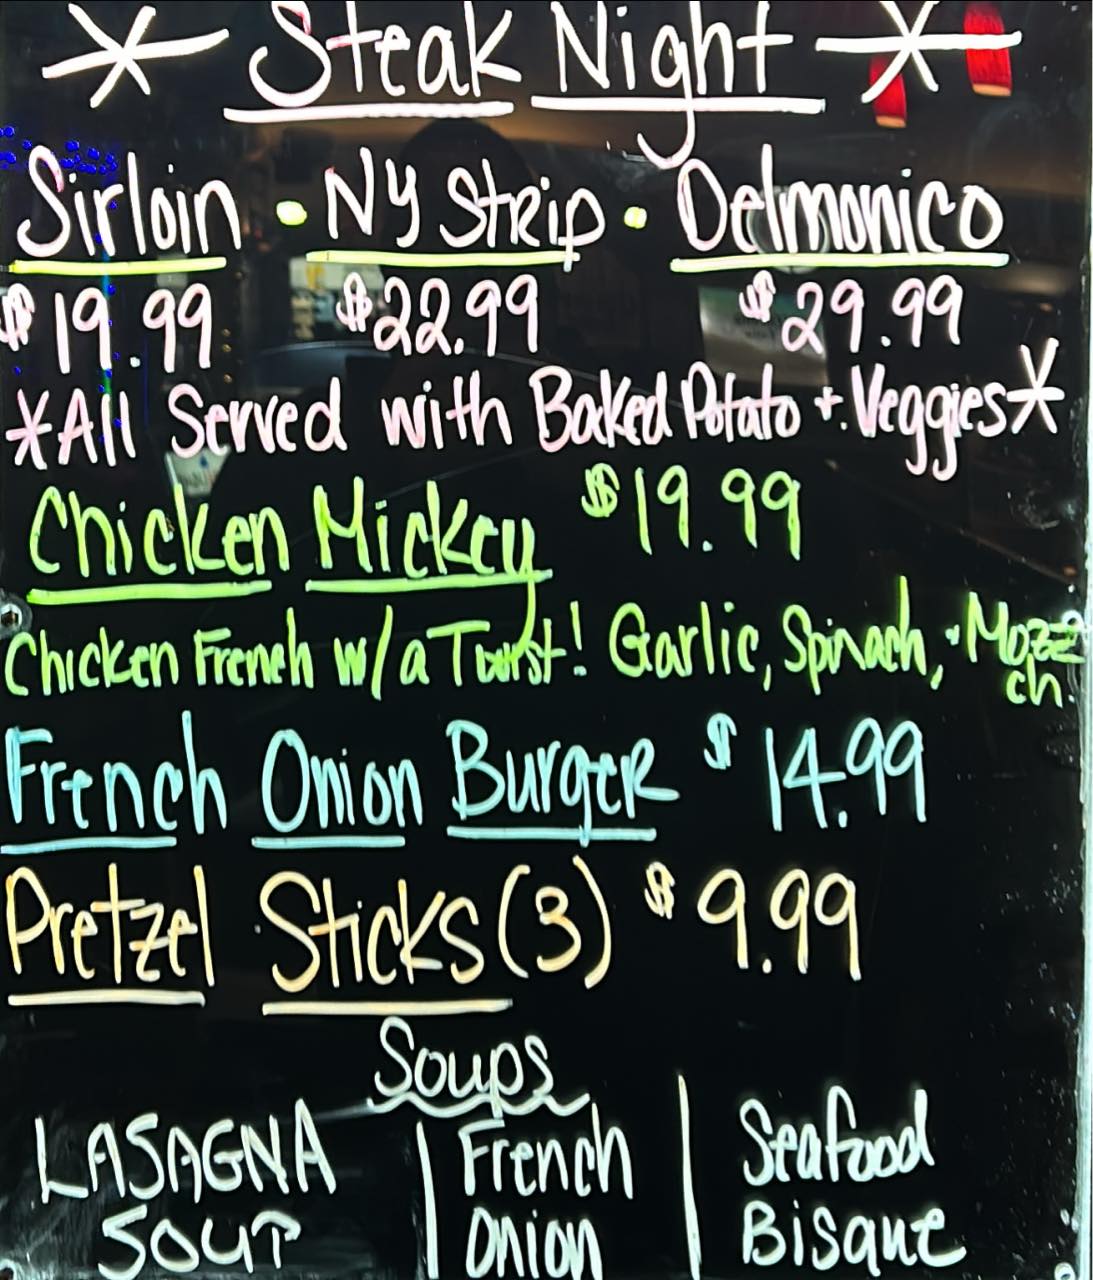 * Steak Night *
Sirloin • NY Strip • Delmonico
$19.99 $22.99 $29.99
*All Served with Baked Potato + Veggies*
Chicken Mickey $19.99
Chicken French w/a Twist! Garlic, Spinach, + Mozz
ch.
French Onion Burger $14.99
Pretzel Sticks (3) $9.99
Soups
LASAGNA | French | Seafood
SOUP | Onion | Bisque